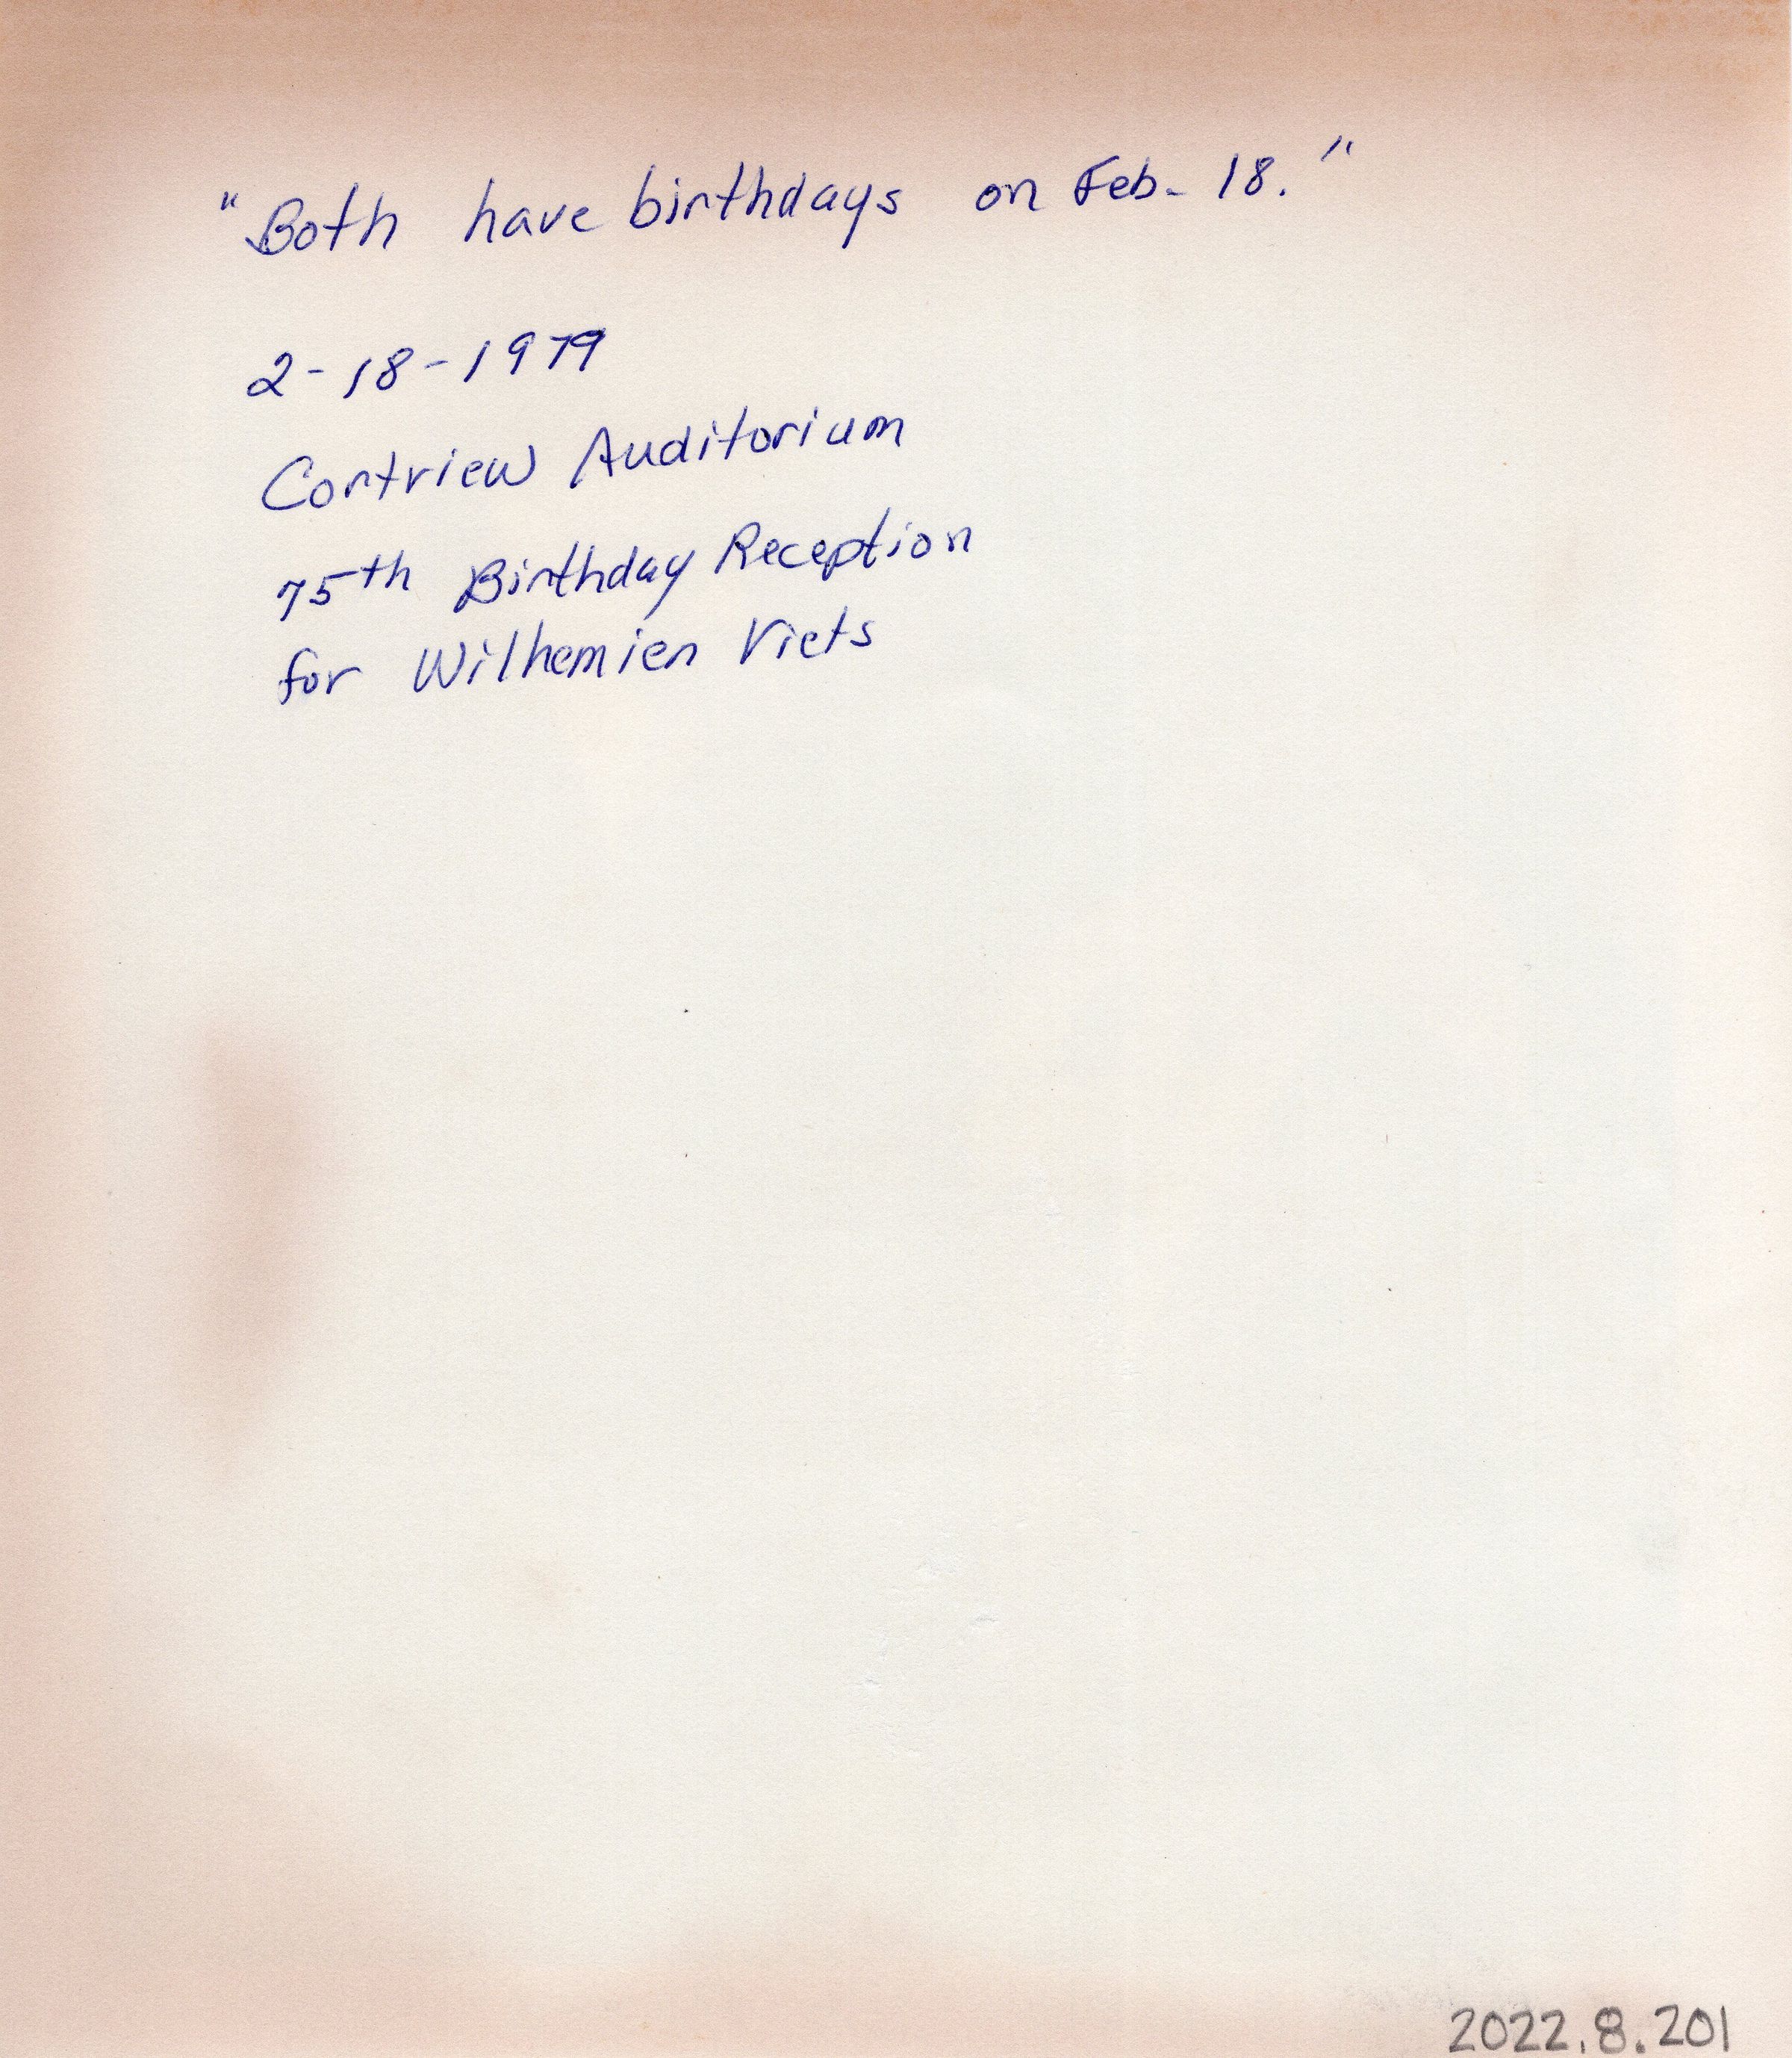 "Both have birthdays on Feb. 18."
2-18-1979
Contview Auditorium
75th Birthday Reception
for Wilhemien Viets
2022.8.201